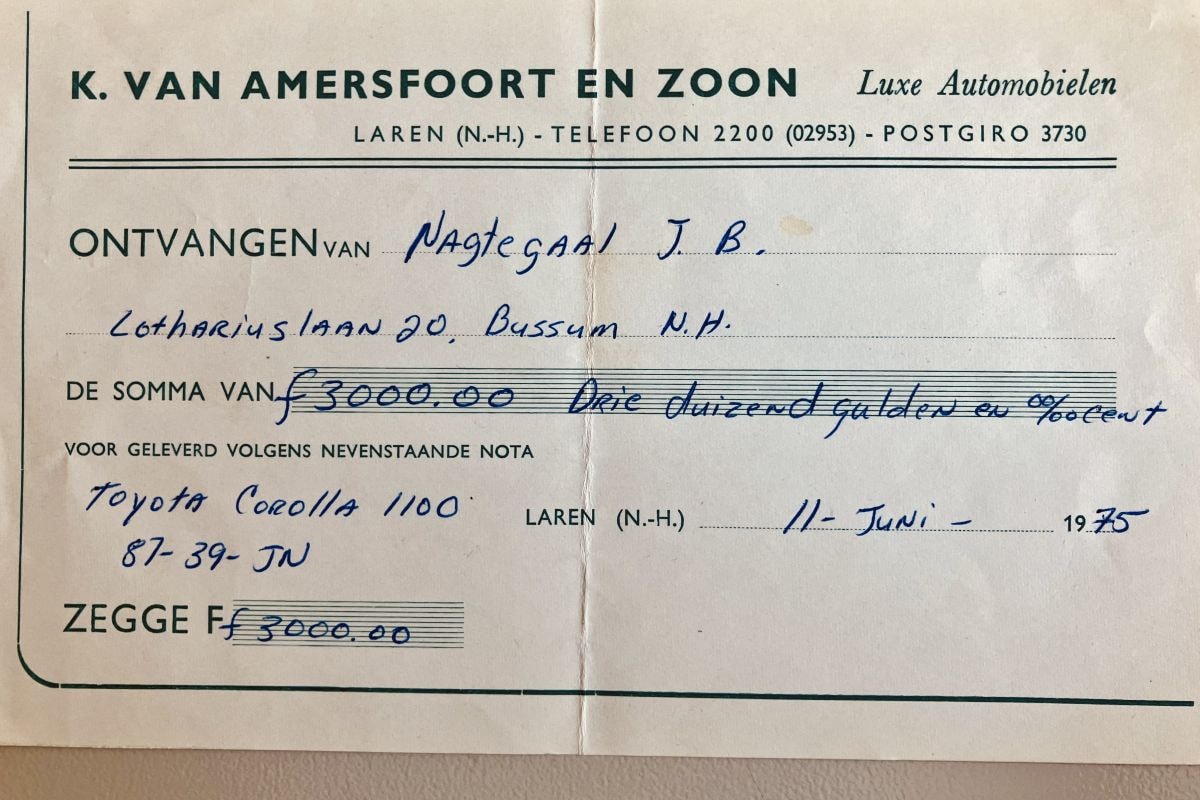 K. VAN AMERSFOORT EN ZOON Luxe Automobielen
LAREN (N.-H.) - TELEFOON 2200 (02953) - POSTGIRO 3730
ONTVANGEN VAN Nagtegaal J. B.
Lothariuslaan 20, Bussum N.H.
DE SOMMA VAN f 3000.00 Drie duizend gulden en 00/00 cent
VOOR GELEVERD VOLGENS NEVENSTAANDE NOTA
Toyota Corolla 1100
LAREN (N.-H.) 11- Juni - 1975
87-39-JN
ZEGGE F f 3000.00